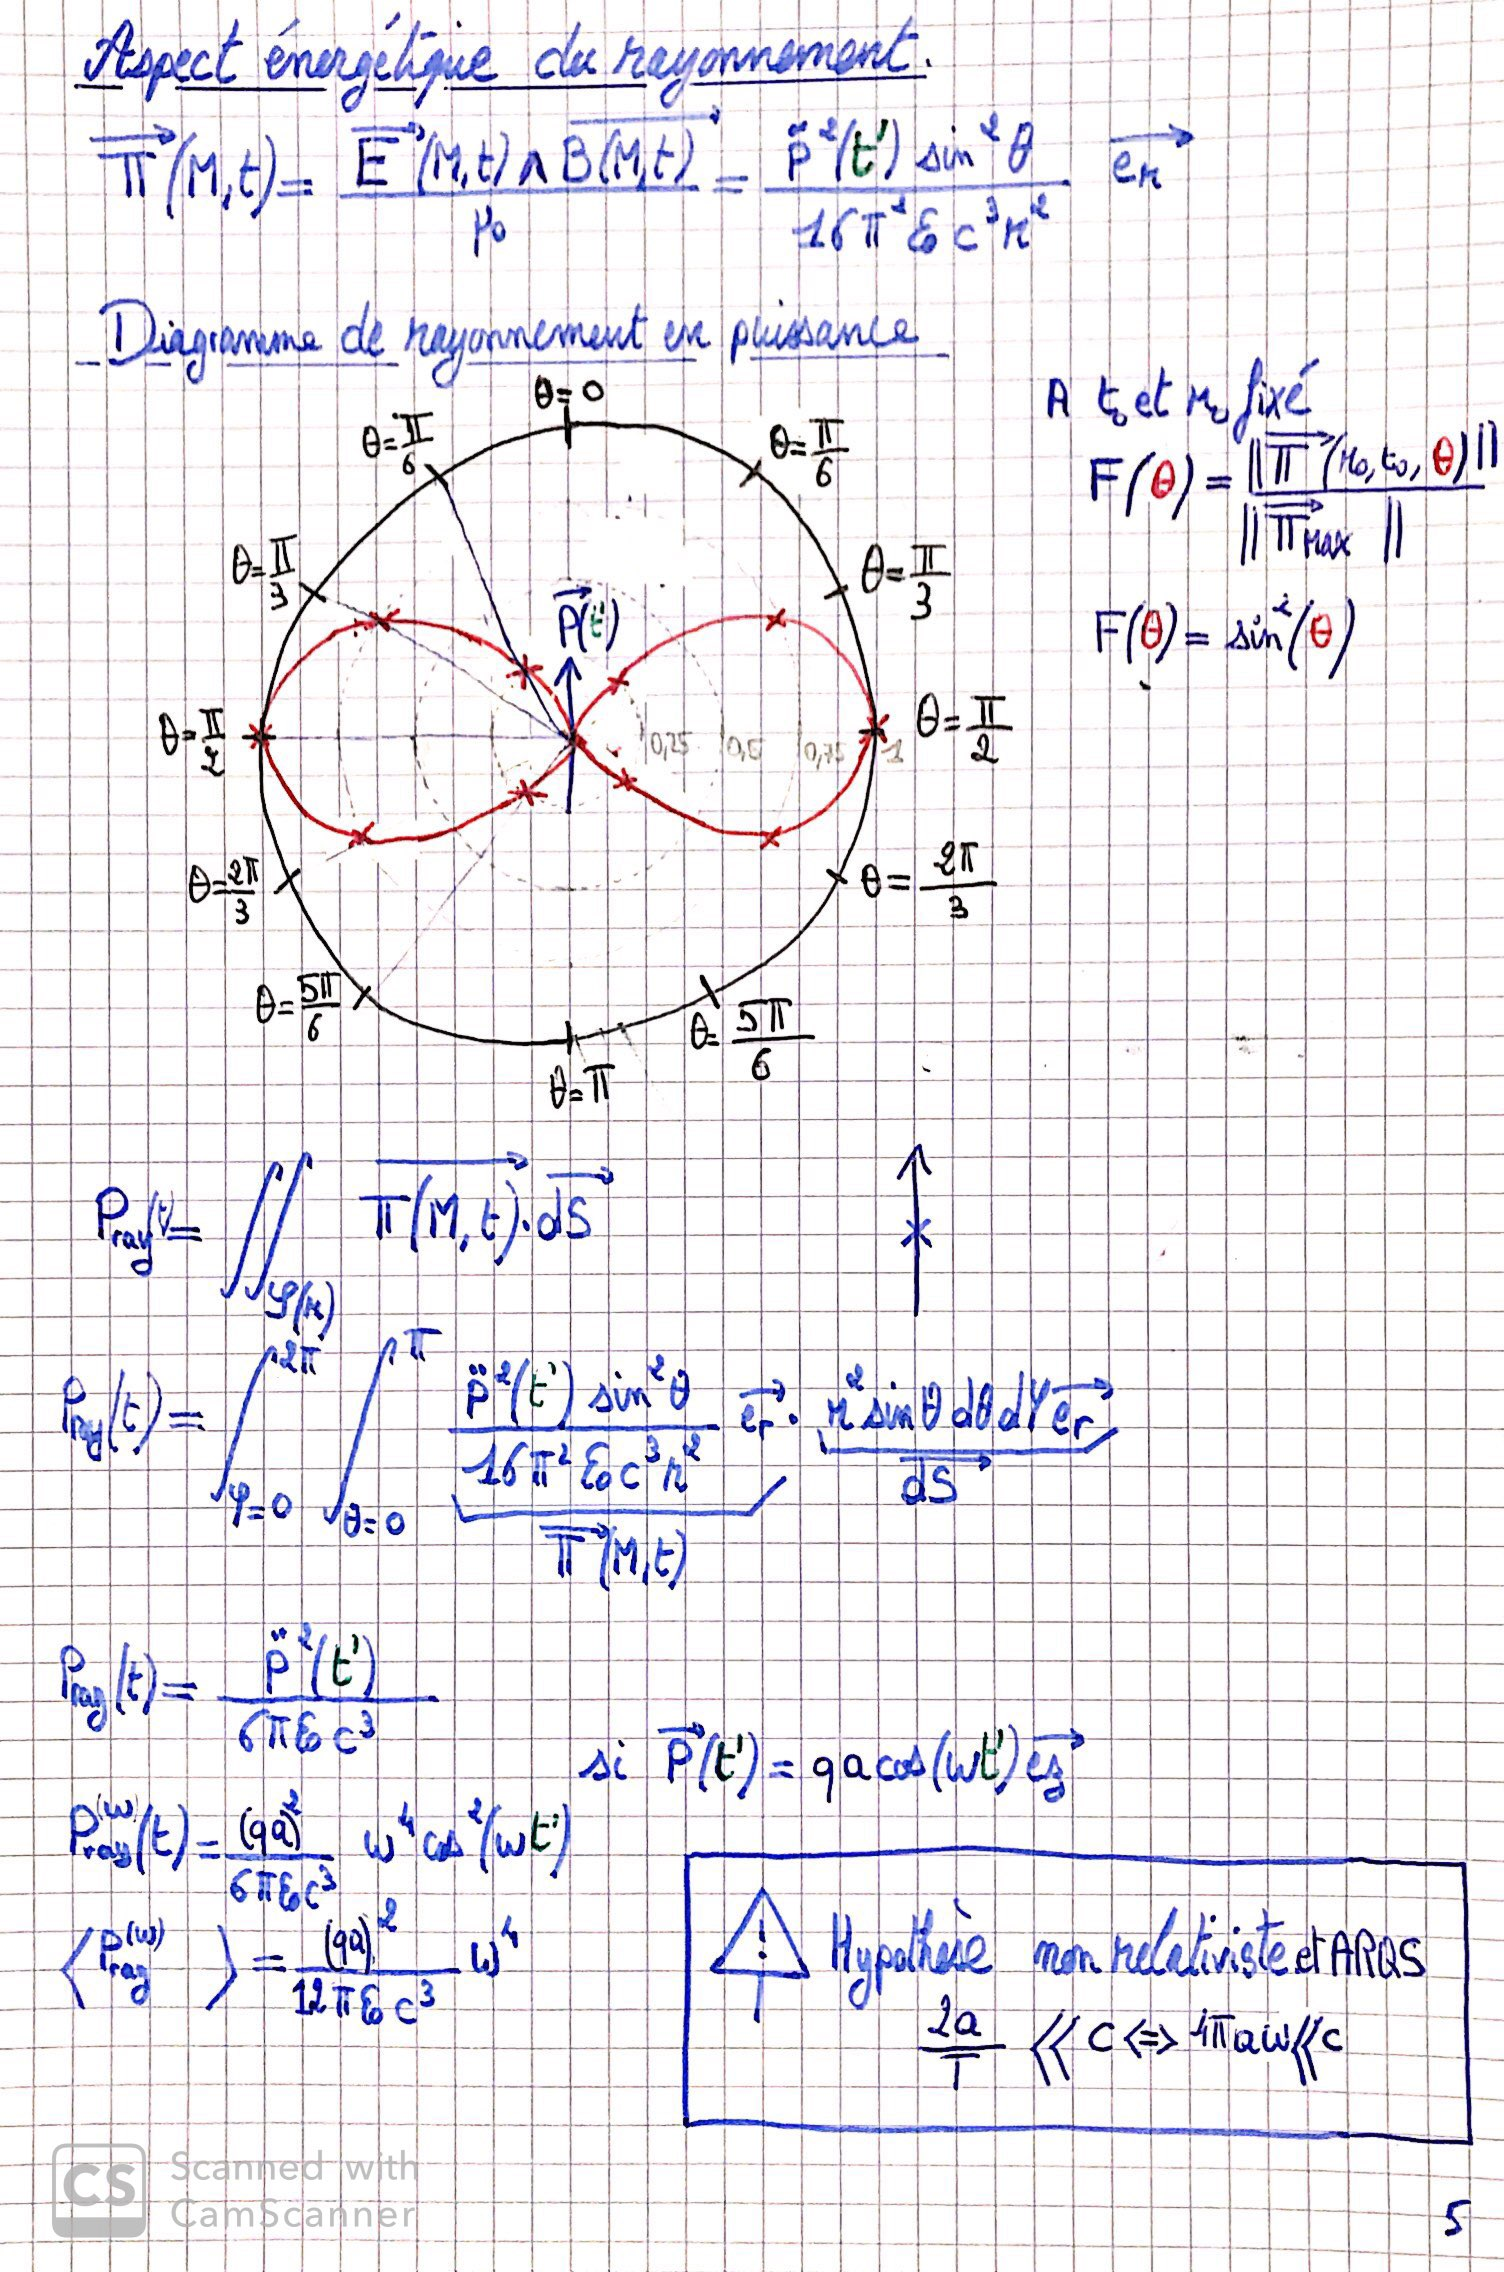 Aspect énergétique du rayonnement.
Π⃗(M,t) = E⃗(M,t) ∧ B⃗(M,t) / μ₀ = p̈²(t') sin²θ / 16π²ε₀c³r² e⃗r
Diagramme de rayonnement en puissance
A t₀ et r₀ fixé
F(θ) = ||Π⃗(r₀, t₀, θ)|| / ||Π⃗MAX||
F(θ) = sin²(θ)
θ=0
θ=π/6
θ=π/6
θ=π/3
θ=π/3
P⃗(t')
θ=π/2
0,25
0,5
0,75
1
θ=π/2
θ=2π/3
θ=2π/3
θ=5π/6
θ=5π/6
θ=π
Pray(t) = ∬𝒮(r) Π⃗(M,t)·dS⃗
Pray(t) = ∫φ=0^2π ∫θ=0^π p̈²(t') sin²θ / 16π²ε₀c³r² e⃗r · r² sinθ dθ dφ e⃗r
Π⃗(M,t)
dS⃗
Pray(t) = p̈²(t') / 6πε₀c³
si P⃗(t') = qa cos(ωt') e⃗z
Pray^(ω)(t) = (qa)² / 6πε₀c³ ω⁴ cos²(ωt')
⟨Pray^(ω)⟩ = (qa)² / 12πε₀c³ ω⁴
! Hypothèse non relativiste et ARQS
2a / T ≪ C ⟺ 4πaω ≪ c
CS Scanned with
CamScanner
5